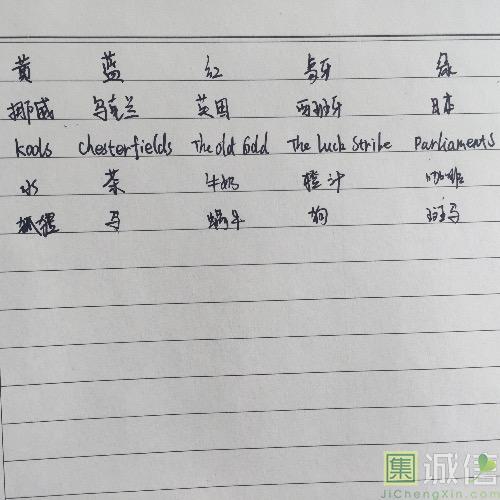 黄 蓝 红 象牙 绿
挪威 乌克兰 英国 西班牙 日本
Kools Chesterfields The old Gold The luck Strike Parliaments
水 茶 牛奶 橙汁 咖啡
狐狸 马 蜗牛 狗 斑马
集 诚信
JiChengXin.com